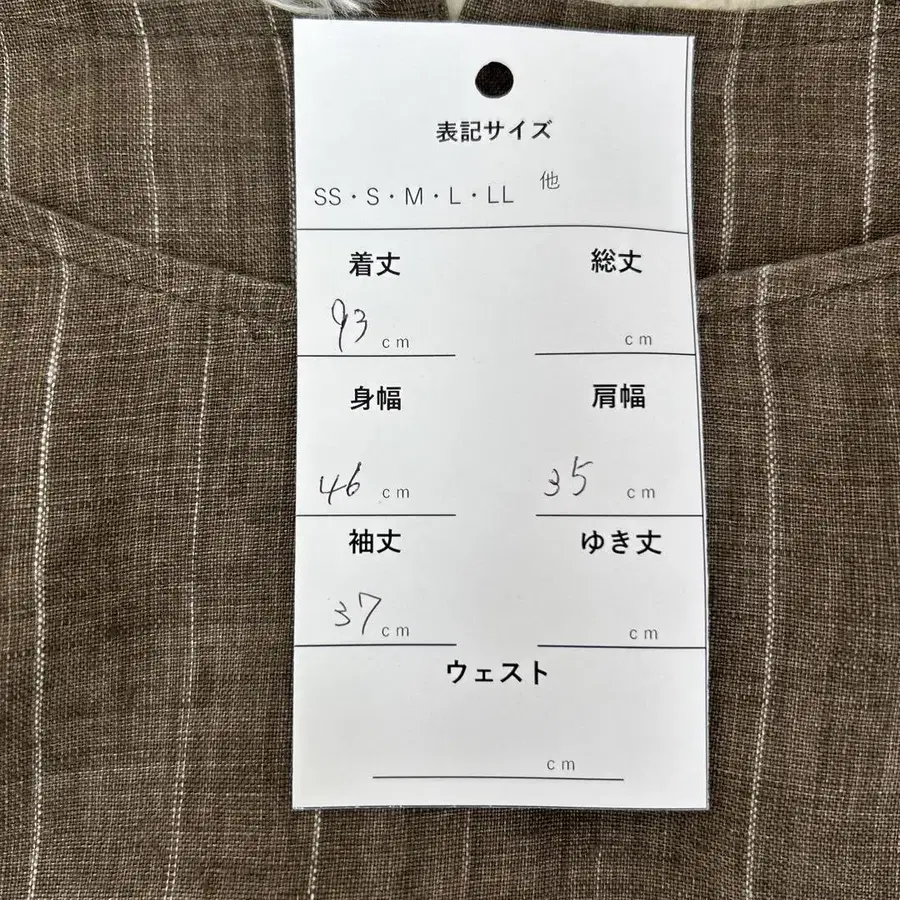 表記サイズ
SS・S・M・L・LL 他
着丈 総丈
93 cm cm
身幅 肩幅
46 cm 35 cm
袖丈 ゆき丈
37 cm cm
ウェスト
cm